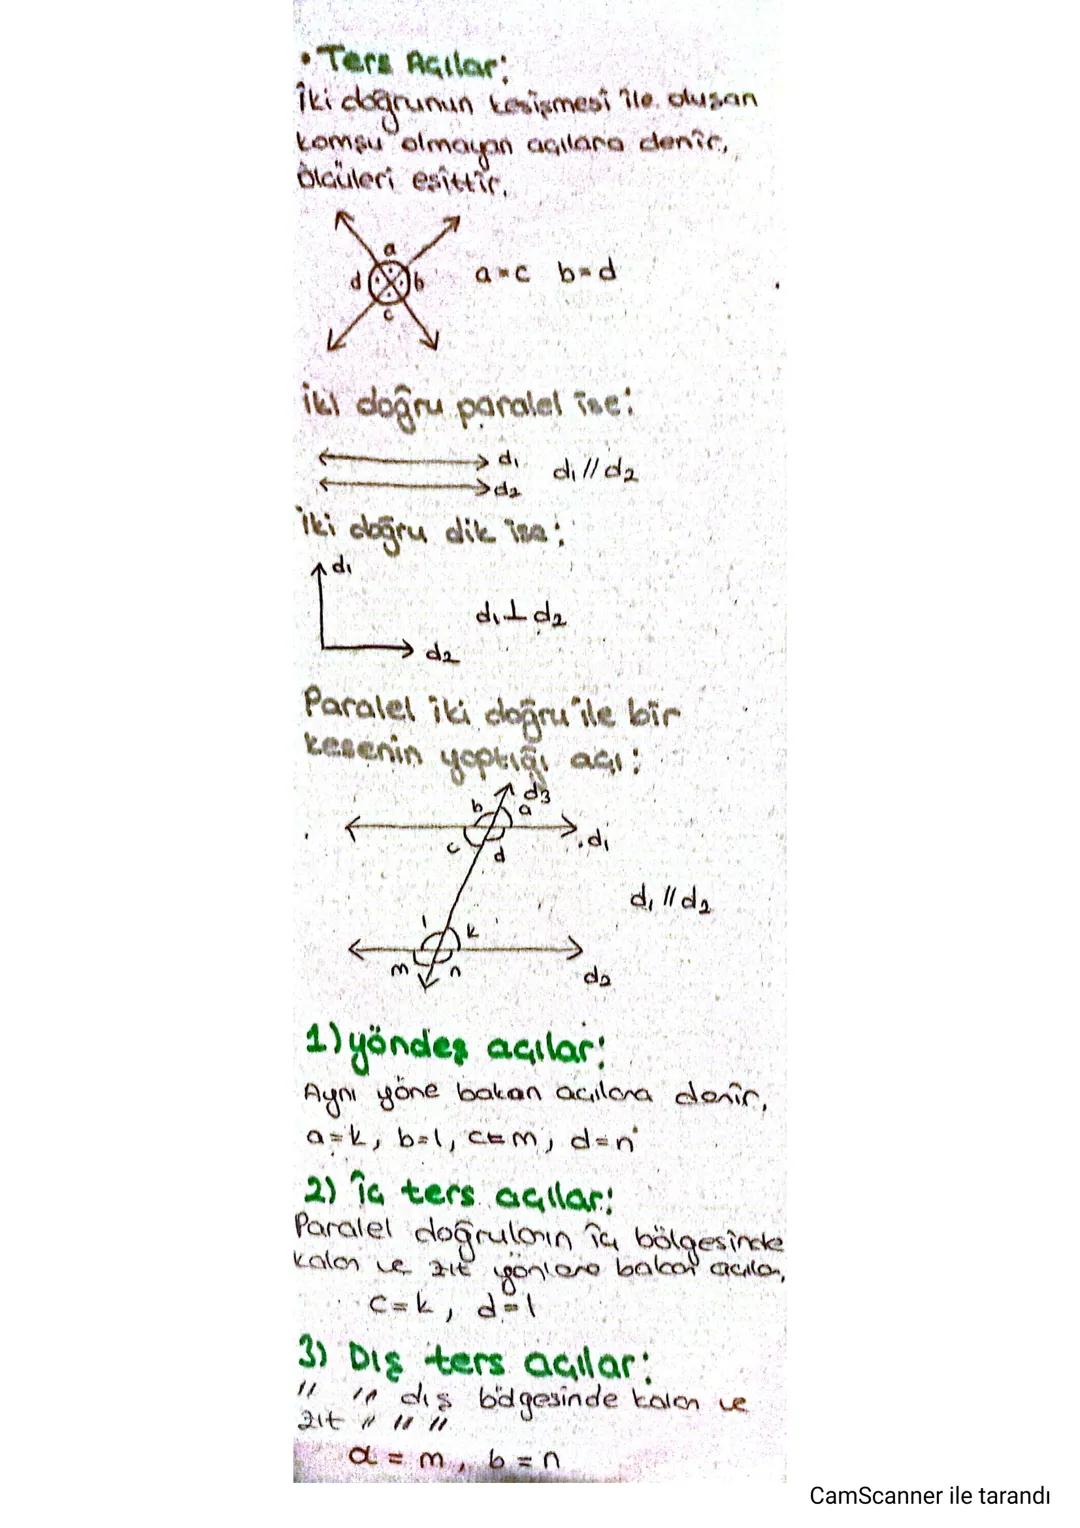 • Ters Açılar:
İki doğrunun kesişmesi ile oluşan
komşu olmayan açılara denir,
ölçüleri eşittir.
a
d b
c
a=c b=d
İki doğru paralel ise:
d₁
d₂
d₁ // d₂
İki doğru dik ise:
d₁
d₁ ⊥ d₂
d₂
Paralel iki doğru ile bir
kesenin yaptığı açı:
d₃
b a
d₁
c d
d₁ // d₂
l k
m n
d₂
1) yöndeş açılar:
Aynı yöne bakan açılara denir,
a=k, b=l, c=m, d=n
2) İç ters açılar:
Paralel doğruların iç bölgesinde
kalan ve zıt yönlere bakan açılar,
c=k, d=l
3) Dış ters açılar:
" " dış bölgesinde kalan ve
zıt " " "
a = m, b = n
CamScanner ile tarandı